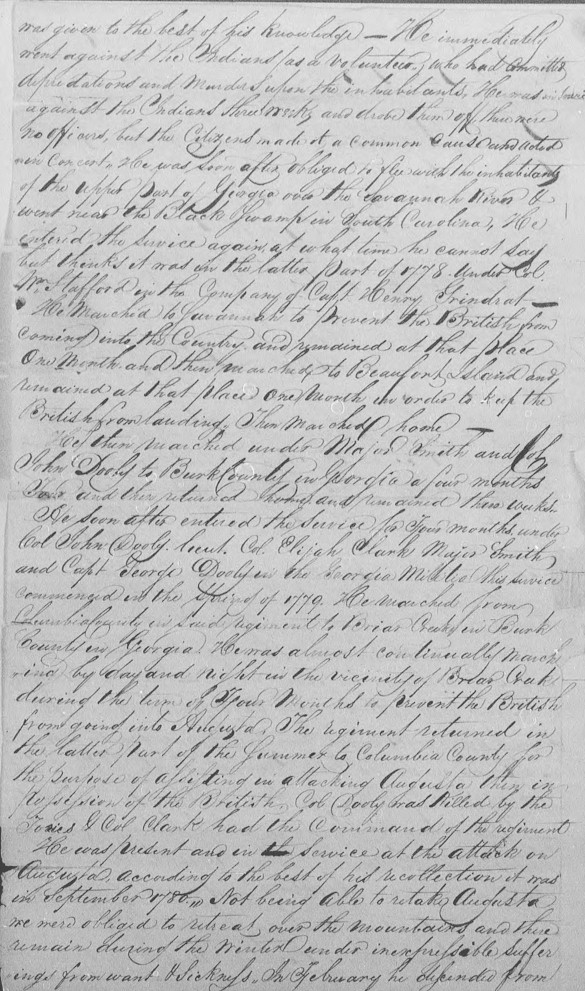 was given to the best of his knowledge — He immediately
went against the Indians (as a volunteer) who had committed
depredations and Murders upon the inhabitants, He was in service
against the Indians three weeks and drove them off there were
no officers, but the Citizens made it a common cause and acted
in Concert. He was soon after obliged to flee with the inhabitants
of the upper part of Georgia over the Savannah River &
went near the Black Swamp in South Carolina, He
entered the service again, at what time he cannot say
but thinks it was in the latter part of 1778 under Col.
Wm. Stafford in the Company of Capt. Henry Grindrat —
He Marched to Savannah to prevent the British from
coming into the Country and remained at that place
One Month and then marched to Beaufort Island and
remained at that place one Month in order to keep the
British from landing. Then marched home —
He then marched under Major Smith and Col.
John Dooly to Burk County in Georgia a four months
Tour and then returned home and remained three weeks.
He soon after entered the service for Four months, under
Col John Dooly. lieut. Col. Elijah Clark Major Smith
and Capt George Dooly in the Georgia Militia this service
commenced in the Spring of 1779. He marched from
Columbia County in said regiment to Briar Creek in Burk
County in Georgia. He was almost continually march
ing by day and night in the vicinity of Briar Creek
during the term of Four Months to prevent the British
from going into Augusta, The regiment returned in
the latter part of the Summer to Columbia County for
the purpose of assisting in attacking Augusta then in
possession of the British, Col. Dooly was killed by the
Tories & Col Clark had the Command of the regiment
He was present and in the service at the attack on
Augusta. according to the best of his recollection it was
in September 1780, Not being able to retake Augusta
we were obliged to retreat over the mountains and there
remain during the Winter under inexpressible suffer
ings from want & Sickness, In February he decended from